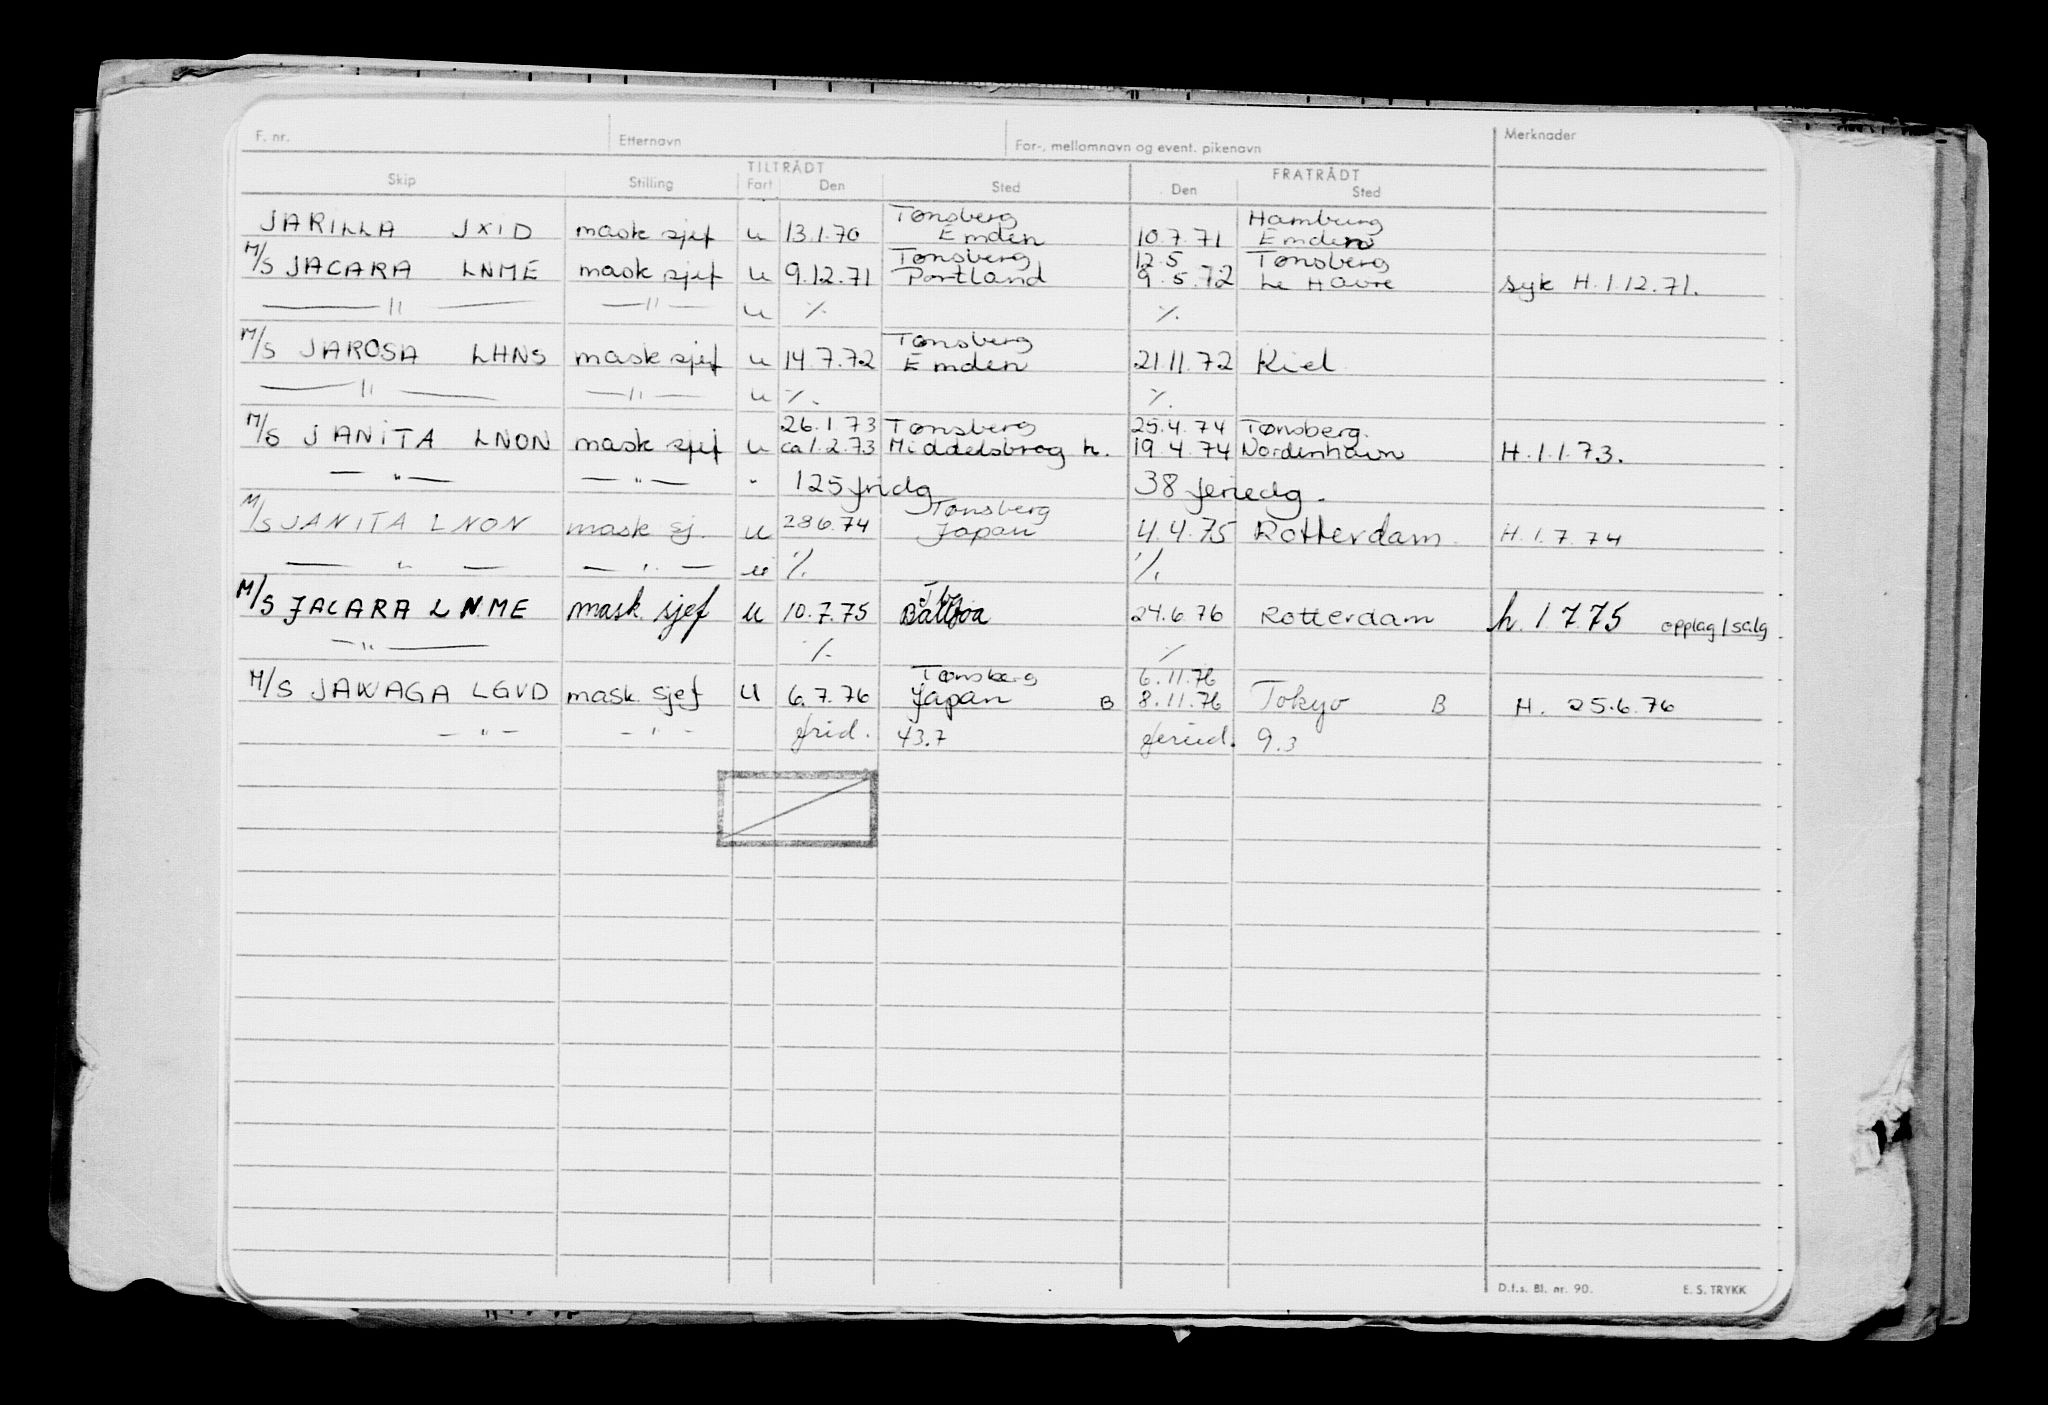 F. nr. Etternavn For-, mellomnavn og event. pikenavn Merknader
TILTRÅDT FRATRÅDT
Skip Stilling Fart Den Sted Den Sted
Tønsberg Hamburg
JARILLA JXID mask sjef u 13.1.70 Emden 10.7.71 Emden
Tønsberg 12.5 Tønsberg
M/S JACARA LNME mask sjef u 9.12.71 Portland 9.5.72 Le Havre syk H.1.12.71.
— " — — " — u % %
Tønsberg
M/S JAROSA LHNS mask sjef u 14.7.72 Emden 21.11.72 Kiel
— " — — " — u %. %.
26.1 73 Tønsberg 25.4.74 Tønsberg.
M/S JANITA LNON mask sjef u ca 1.2.73 Middelsbrog h. 19.4.74 Nordenhavn H.1.1.73.
— " — — " — " 125 fridg 38 feriedg.
Tønsberg
M/S JANITA LNON mask sj. u 286.74 Japan 4.4.75 Rotterdam H.1.7.74
— " — — " — u %. %.
Tbg
M/S JACARA LNME mask sjef u 10.7.75 24.6.76 Rotterdam h. 1 7.75 opplag/salg
— " — %. %
Tønsberg 6.11.76
M/S JAWAGA LGVD mask. sjef u 6.7.76 Japan B 8.11.76 Tokyo B H. 25.6.76
— " — — " — frid. 43.7 feried. 9.3
D.f.s. Bl. nr. 90. E. S. TRYKK